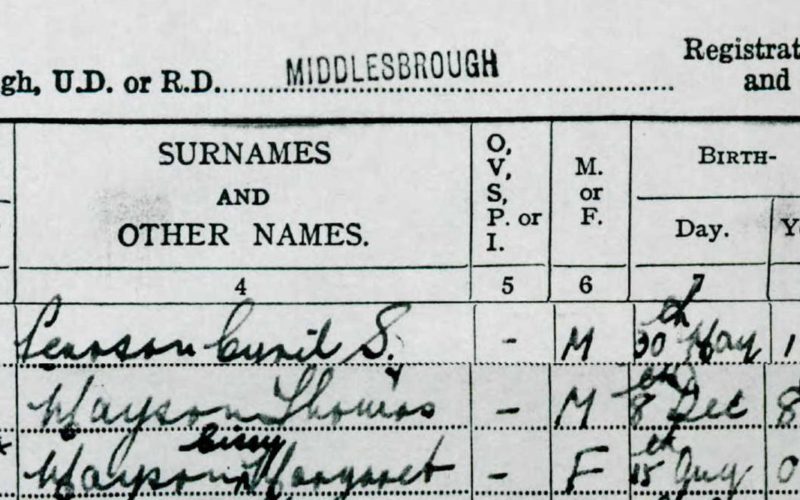 gh, U.D. or R.D. MIDDLESBROUGH
Registrat
and
SURNAMES AND OTHER NAMES.
O, V, S, P. or I.
M. or F.
BIRTH-
Day.
Y
4 5 6 7
Pearson Cyril S. - M 30th May 1
Mayson Thomas - M 8th Dec 8
Cissy
* Mayson Margaret - F 15th Aug 0